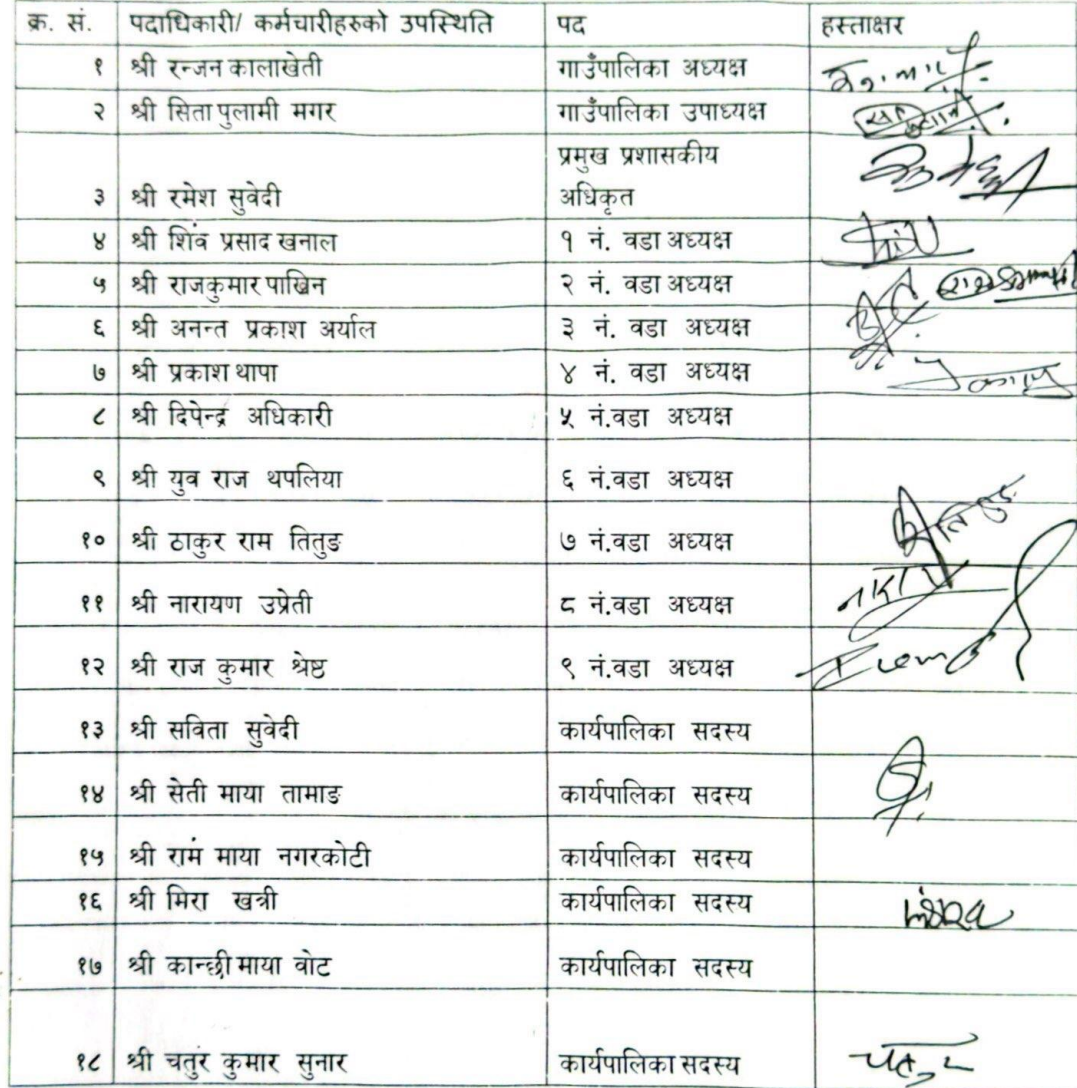 क्र. सं. पदाधिकारी/ कर्मचारीहरुको उपस्थिति पद हस्ताक्षर
१ श्री रन्जन कालाखेती गाउँपालिका अध्यक्ष
२ श्री सिता पुलामी मगर गाउँपालिका उपाध्यक्ष
प्रमुख प्रशासकीय
३ श्री रमेश सुवेदी अधिकृत
४ श्री शिव प्रसाद खनाल १ नं. वडा अध्यक्ष
५ श्री राजकुमार पाख्रिन २ नं. वडा अध्यक्ष
६ श्री अनन्त प्रकाश अर्याल ३ नं. वडा अध्यक्ष
७ श्री प्रकाश थापा ४ नं. वडा अध्यक्ष
८ श्री दिपेन्द्र अधिकारी ५ नं.वडा अध्यक्ष
९ श्री युव राज थपलिया ६ नं.वडा अध्यक्ष
१० श्री ठाकुर राम तितुङ ७ नं.वडा अध्यक्ष
११ श्री नारायण उप्रेती ८ नं.वडा अध्यक्ष
१२ श्री राज कुमार श्रेष्ठ ९ नं.वडा अध्यक्ष
१३ श्री सविता सुवेदी कार्यपालिका सदस्य
१४ श्री सेती माया तामाङ कार्यपालिका सदस्य
१५ श्री राम माया नगरकोटी कार्यपालिका सदस्य
१६ श्री मिरा खत्री कार्यपालिका सदस्य
१७ श्री कान्छी माया वोट कार्यपालिका सदस्य
१८ श्री चतुर कुमार सुनार कार्यपालिका सदस्य